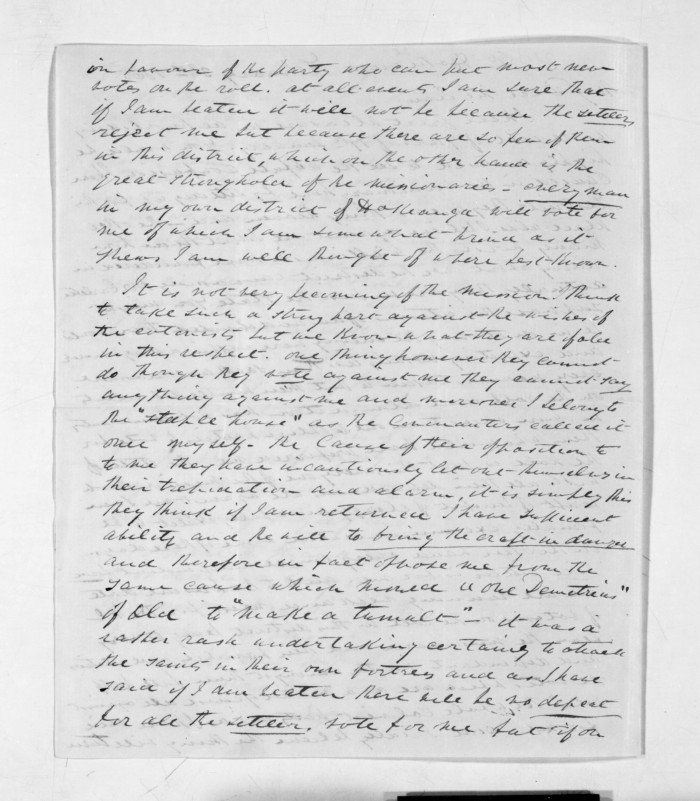 in favour of the party who can put most new
votes on the roll. at all events I am sure that
if I am beaten it will not be because the settlers
reject me but because there are so few of them
in this district, which on the other hand is the
great stronghold of the missionaries – every man
in my own district of Hokianga will vote for
me of which I am somewhat proud as it
shews I am well thought of where best known.
It is not very becoming of the mission I think
to take such a strong part against the wishes of
the colonists but we know what they are of old
in this respect. one thing however they cannot
do though they vote against me they cannot say
anything against me and moreover I belong to
the "steeple house" as the Covenanters called it
once myself. the cause of their opposition to
to me they have incautiously let out themselves in
their trepidation and alarm, it is simply this
they think if I am returned I have sufficient
ability and the will to bring the craft in danger
and therefore in fact oppose me from the
same cause which moved "one Demetrius"
of old to "make a tumult" – it was a
rather rash undertaking certainly to attack
the saints in their own fortress and as I have
said if I am beaten there will be no defeat
for all the settlers vote for me but if on